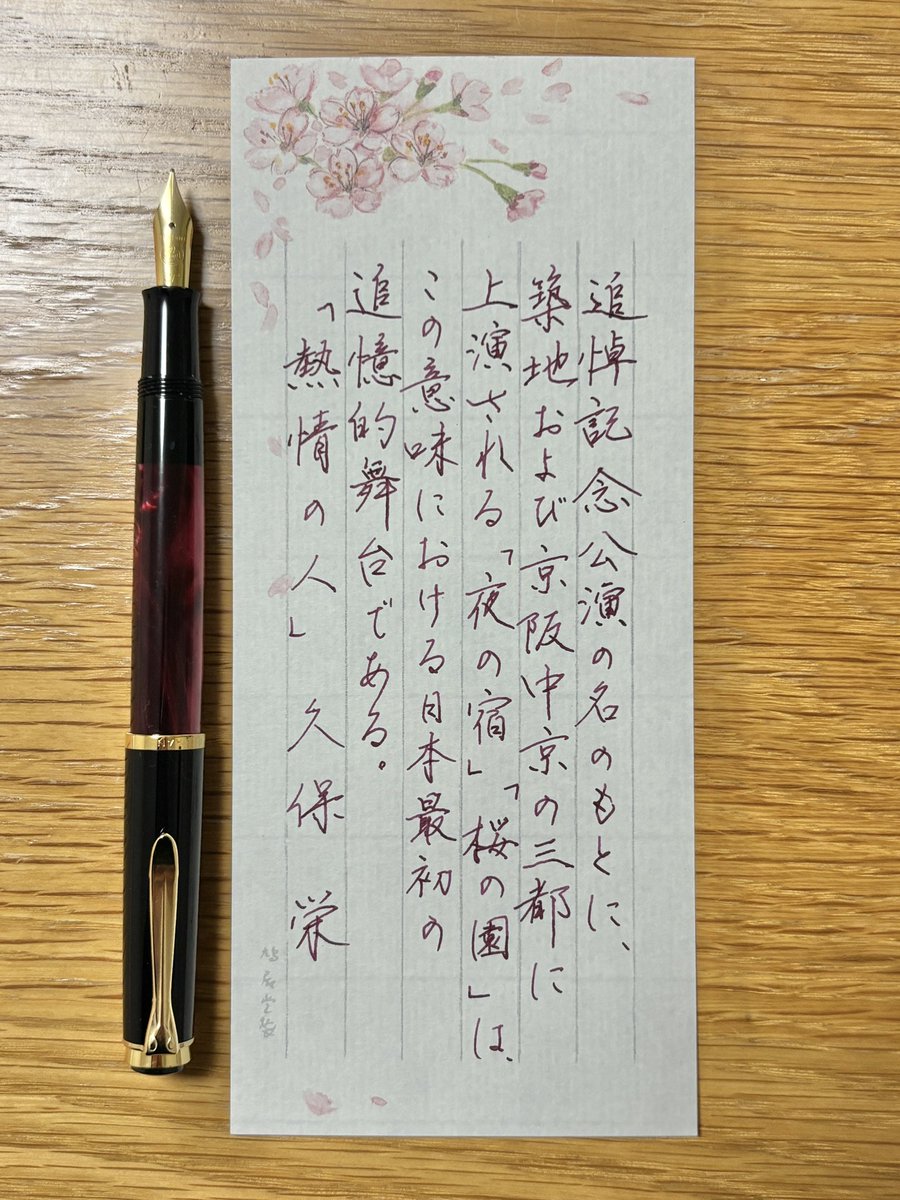 追悼記念公演の名のもとに、
築地および京阪中京の三都に
上演される「夜の宿」「桜の園」は、
この意味における日本最初の
追憶的舞台である。
「熱情の人」 久保栄
鳩居堂製